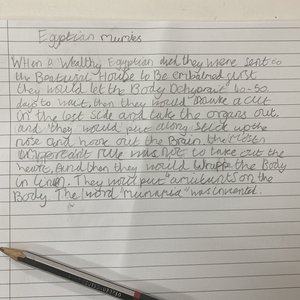 Egyptian mumies
WHen a Wealthy Egyptian died they were sent to
the Beatural House to Be embalmed first
they would let the Body Dehydrait 40-50
days to wait, then they would make a cut
in the left side and take the organs out,
and they would put along stick up the
nose and hook out the Brain, the
important rule was not to take out the
heart, And then they would Wrapp the Body
in linen. They would put amulents on the
Body. The word "mumamia" was invented.